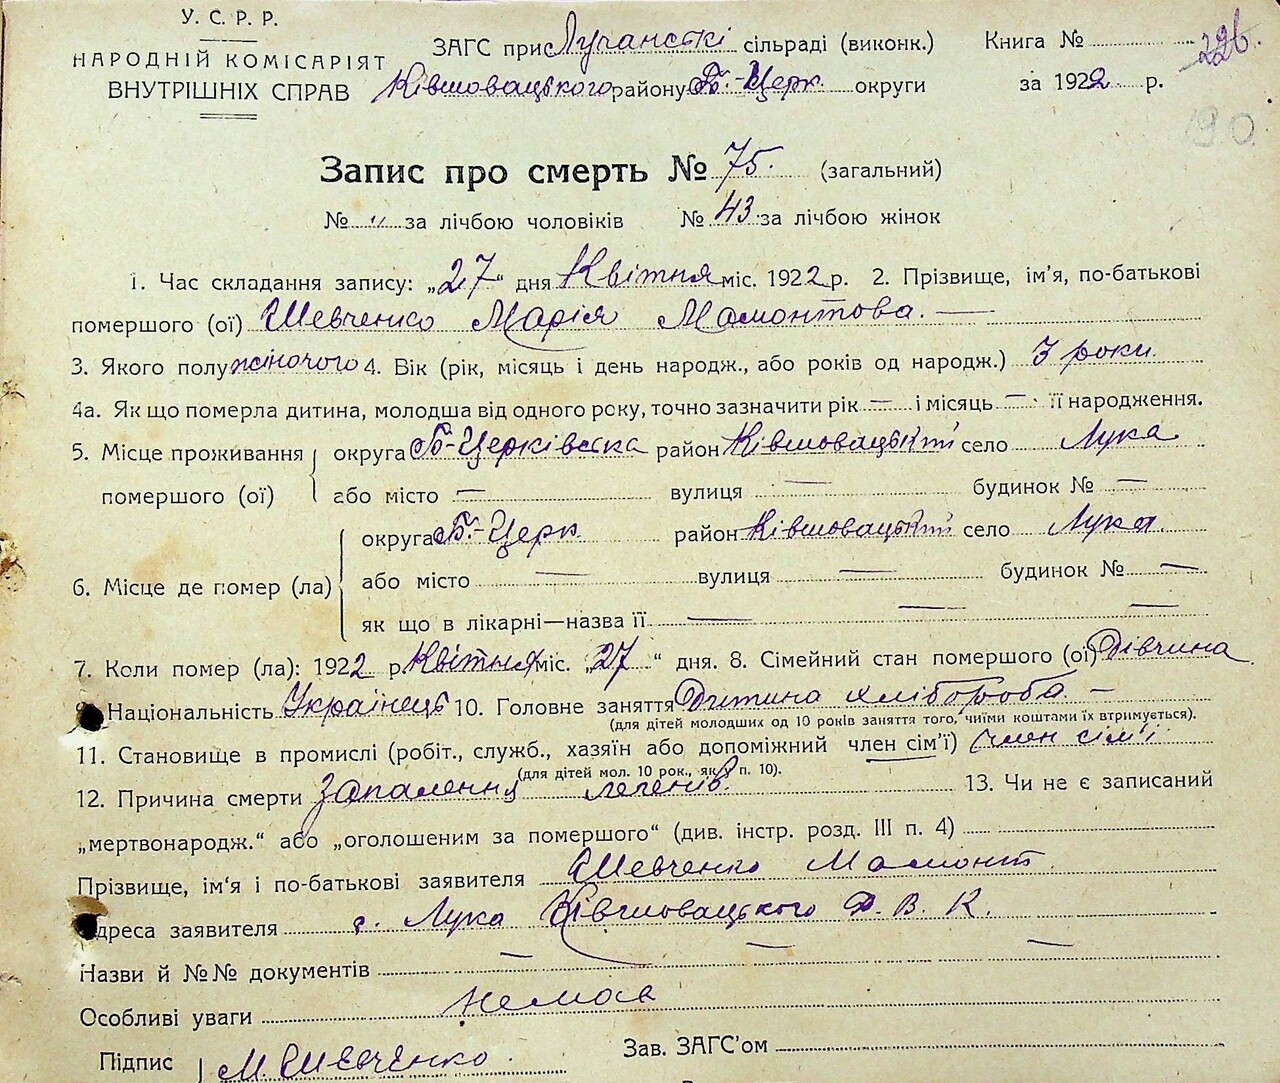 У. С. Р. Р.
НАРОДНІЙ КОМІСАРІЯТ
ВНУТРІШНІХ СПРАВ
ЗАГС при Лучанські сільраді (виконк.) Книга № 226.
Ківшовацького району Б.-Церк. округи за 1922 р.
190
Запис про смерть № 75. (загальний)
№ „ за лічбою чоловіків № 43 за лічбою жінок
1. Час складання запису: „27“ дня Квітня міс. 1922 р. 2. Прізвище, ім'я, по-батькові
помершого (ої) Шевченко Марія Мамонтова. —
3. Якого полу жіночого 4. Вік (рік, місяць і день народж., або років од народж.) 3 роки.
4а. Як що померла дитина, молодша від одного року, точно зазначити рік — і місяць — її народження.
5. Місце проживання округа Б-Церківська район Ківшовацький село Лука
помершого (ої) або місто — вулиця — будинок № —
округа Б.-Церк. район Ківшовацький село Лука
6. Місце де помер (ла) або місто — вулиця — будинок № —
як що в лікарні—назва її — — —
7. Коли помер (ла): 1922 р. Квітня міс. „27“ дня. 8. Сімейний стан помершого (ої) Дівчина
Національність Українець 10. Головне заняття Дитина хлібороба. —
(для дітей молодших од 10 років заняття того, чиїми коштами їх втримується).
11. Становище в промислі (робіт., служб., хазяїн або допоміжний член сім'ї) член сім'ї
(для дітей мол. 10 рок., як в п. 10).
12. Причина смерти Запалення легенів. 13. Чи не є записаний
„мертвонародж.“ або „оголошеним за помершого“ (див. інстр. розд. III п. 4)
Прізвище, ім'я і по-батькові заявителя Шевченко Мамонт
дреса заявителя с. Лука Ківшовацького Р. В. К.
Назви й №№ документів — — —
Особливі уваги немає
Підпис М. Шевченко. Зав. ЗАГС'ом